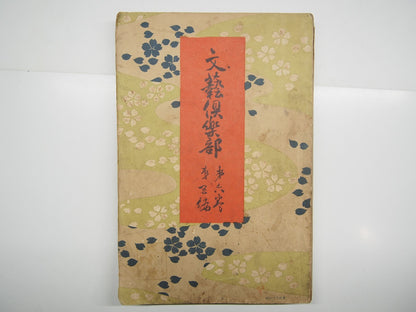 文藝倶楽部
第六巻
第三編